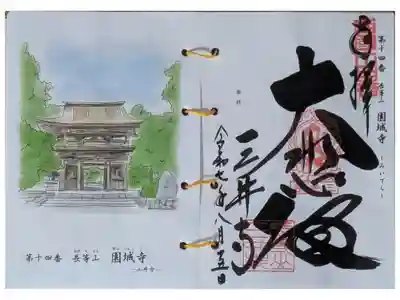 第十四番 長等山 園城寺
奉拝
大悲殿
三井寺
令和七年八月五日
第十四番 長等山 園城寺
―三井寺―